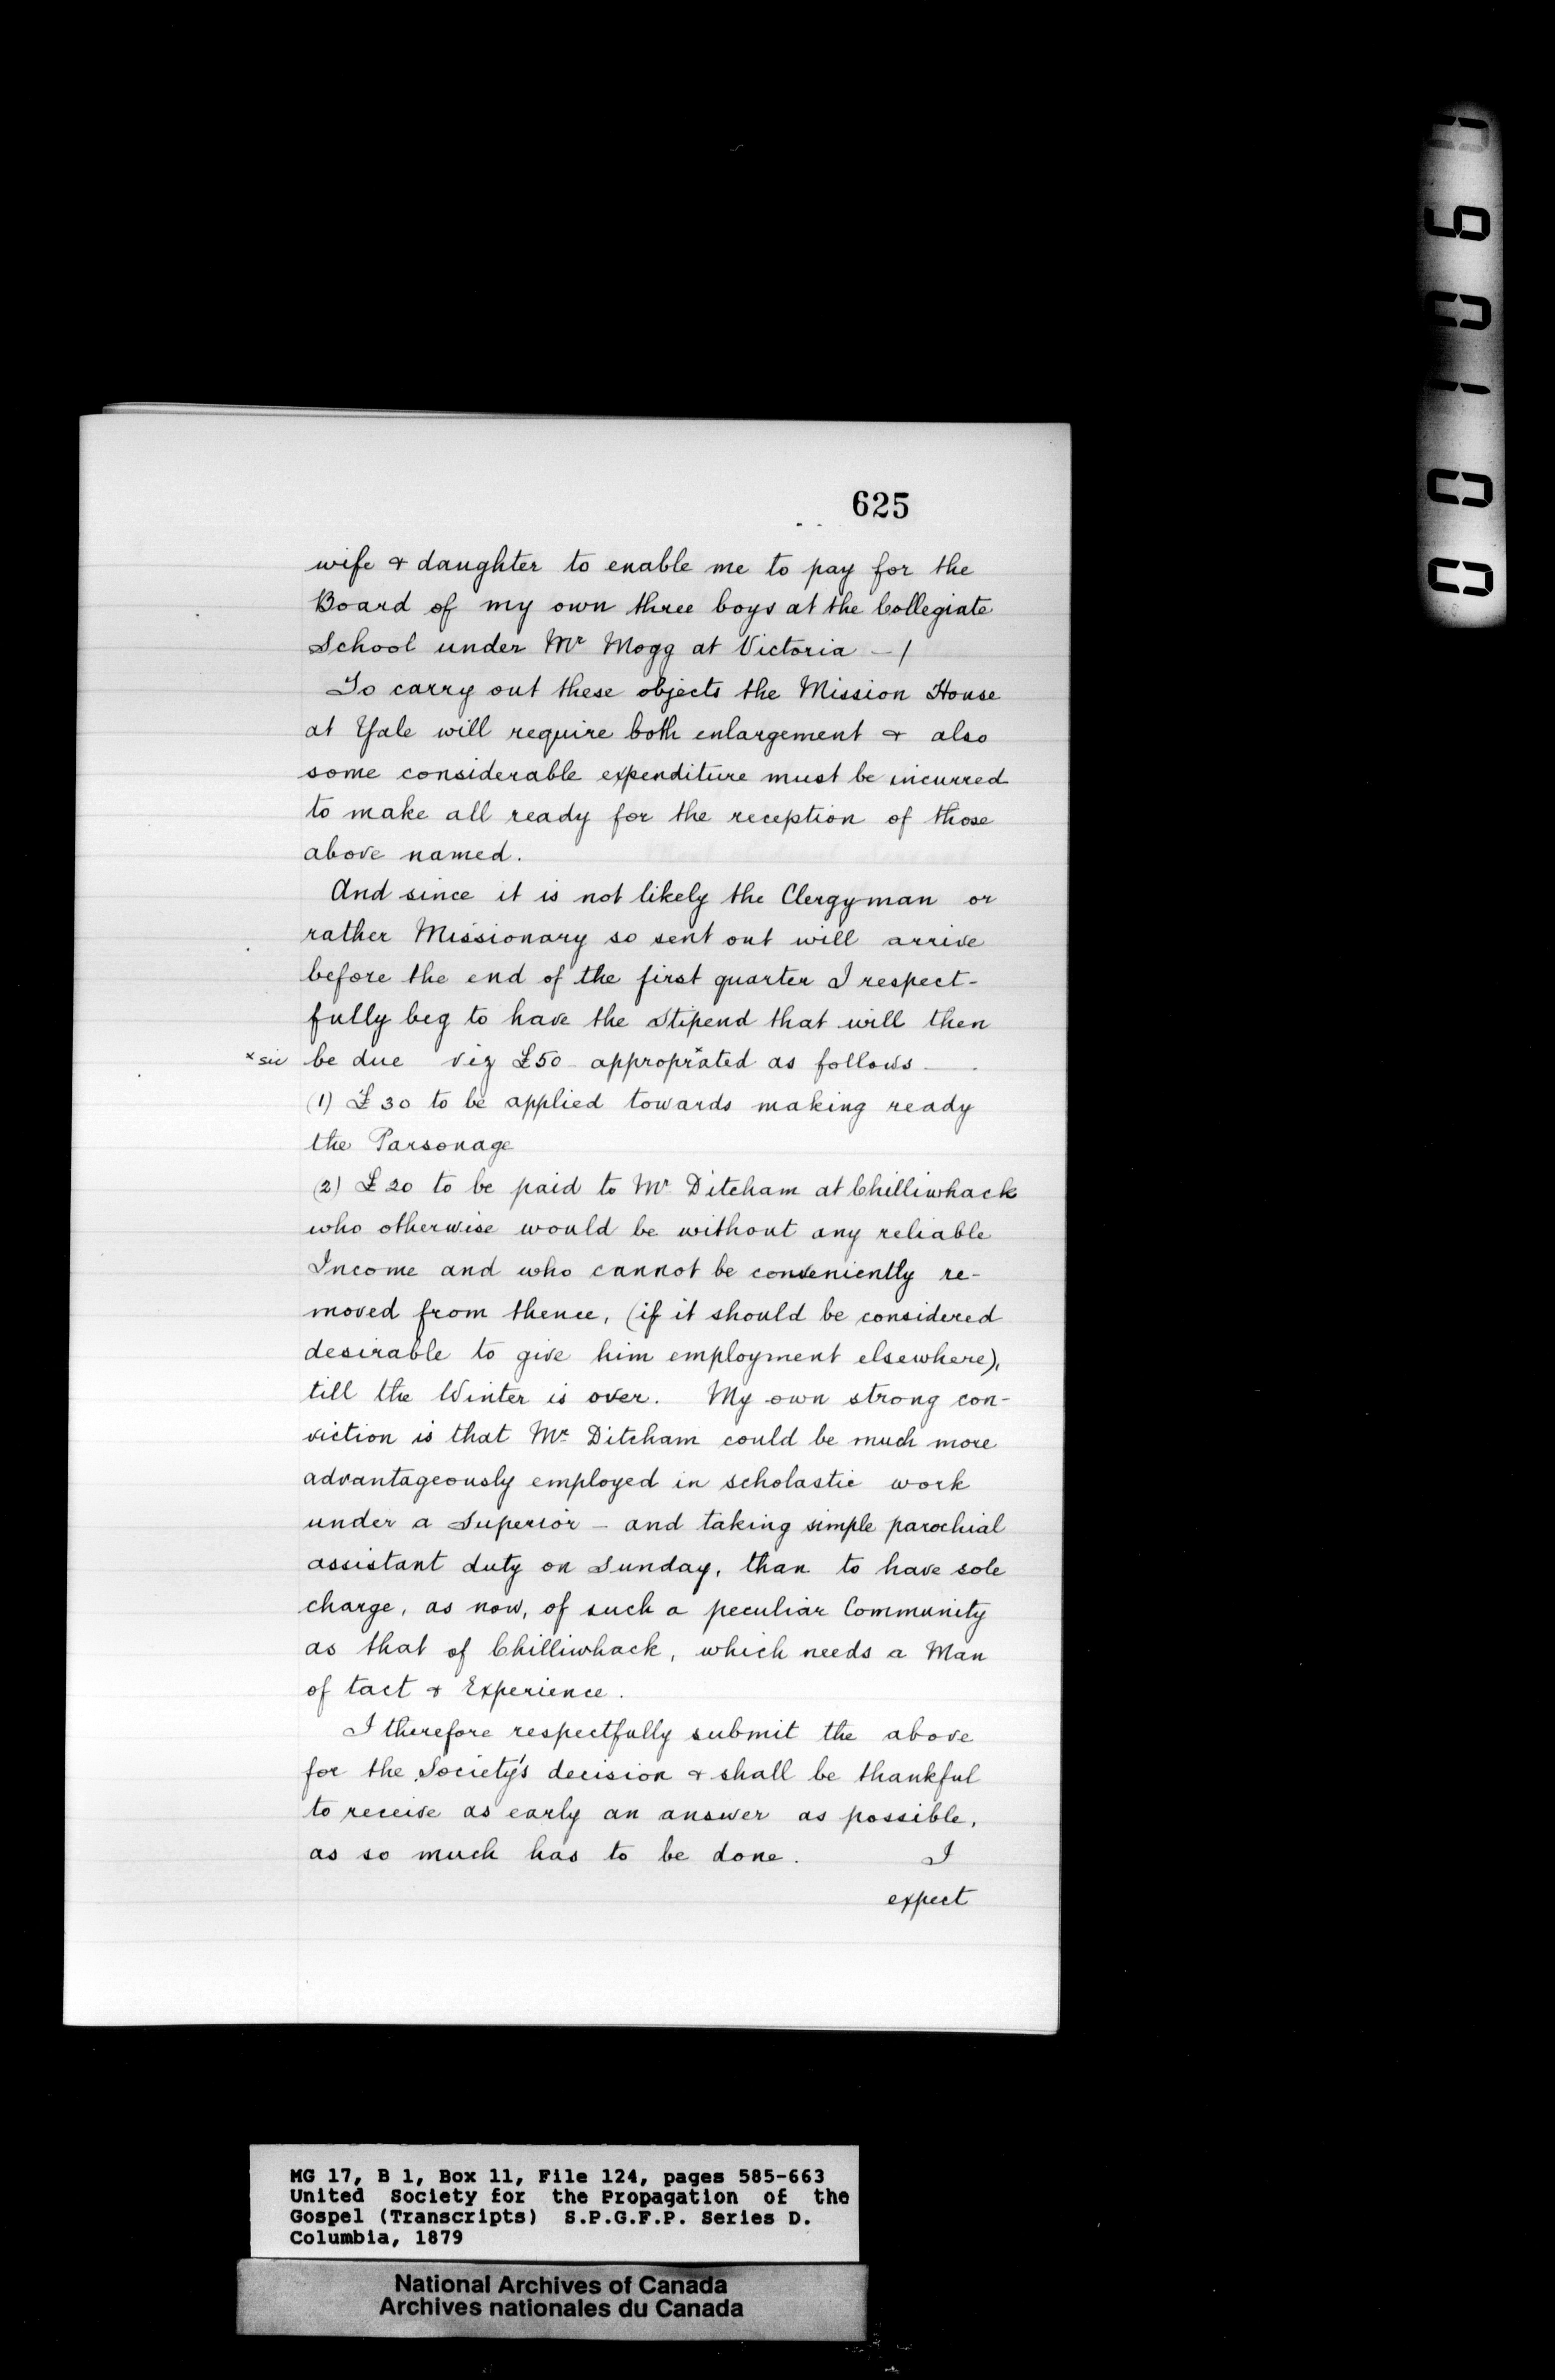 625
wife & daughter to enable me to pay for the
Board of my own three boys at the Collegiate
School under Mr Mogg at Victoria —/
To carry out these objects the Mission House
at Yale will require both enlargement & also
some considerable expenditure must be incurred
to make all ready for the reception of those
above named.
And since it is not likely the Clergyman or
rather Missionary so sent out will arrive
before the end of the first quarter I respect-
fully beg to have the Stipend that will then
× sic be due viz £50 appropr×ated as follows —.
(1) £30 to be applied towards making ready
the Parsonage
(2) £20 to be paid to Mr Ditcham at Chilliwhack
who otherwise would be without any reliable
Income and who cannot be conveniently re-
moved from thence, (if it should be considered
desirable to give him employment elsewhere),
till the Winter is over. My own strong con-
viction is that Mr Ditcham could be much more
advantageously employed in scholastic work
under a Superior – and taking simple parochial
assistant duty on Sunday, than to have sole
charge, as now, of such a peculiar Community
as that of Chilliwhack, which needs a Man
of tact & Experience.
I therefore respectfully submit the above
for the Society's decision & shall be thankful
to receive as early an answer as possible,
as so much has to be done. I
expect
MG 17, B 1, Box 11, File 124, pages 585-663
United Society for the Propagation of the
Gospel (Transcripts) S.P.G.F.P. Series D.
Columbia, 1879
National Archives of Canada
Archives nationales du Canada